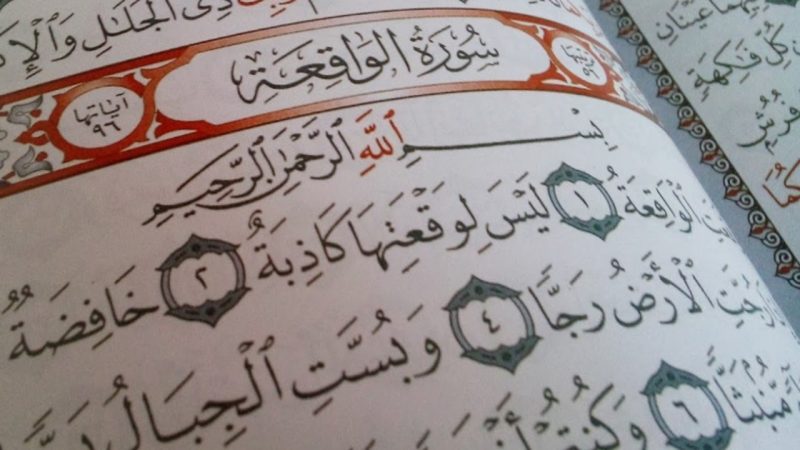 ذِي الْجَلَالِ وَالْإِكْ
سُورَةُ الْوَاقِعَةِ
آيَاتُهَا ٩٦
بِسْمِ اللَّهِ الرَّحْمَٰنِ الرَّحِيمِ
الْوَاقِعَةُ ١ لَيْسَ لِوَقْعَتِهَا كَاذِبَةٌ ٢ خَافِضَةٌ
رُجَّتِ الْأَرْضُ رَجًّا ٤ وَبُسَّتِ الْجِبَالُ
مُّنبَثًّا ٦ وَكُنتُمْ
عَيْنَانِ
كُلِّ فَاكِهَةٍ
فُرُشٍ